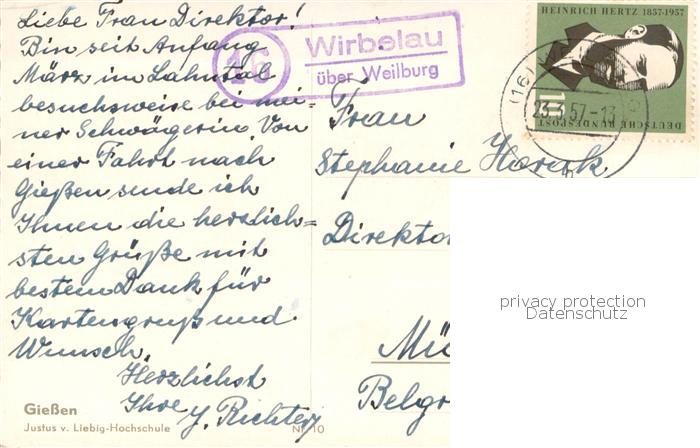 Liebe Frau Direktor!
Bin seit Anfang
März im Lahntal
besuchsweise bei mei-
ner Schwägerin. Von
einer Fahrt nach
Gießen sende ich
Ihnen die herzlich-
sten Grüße mit
bestem Dank für
Kartengruß und
Wunsch.
Herzlichst
Ihre Y. Richter
Gießen
Justus v. Liebig-Hochschule
Nr. 10
16
Wirbelau
über Weilburg
HEINRICH HERTZ 1857-1957
10
DEUTSCHE BUNDESPOST
(16)
57-13
Frau
Stephanie Horak
Direktor
Mü
Belgr
privacy protection
Datenschutz